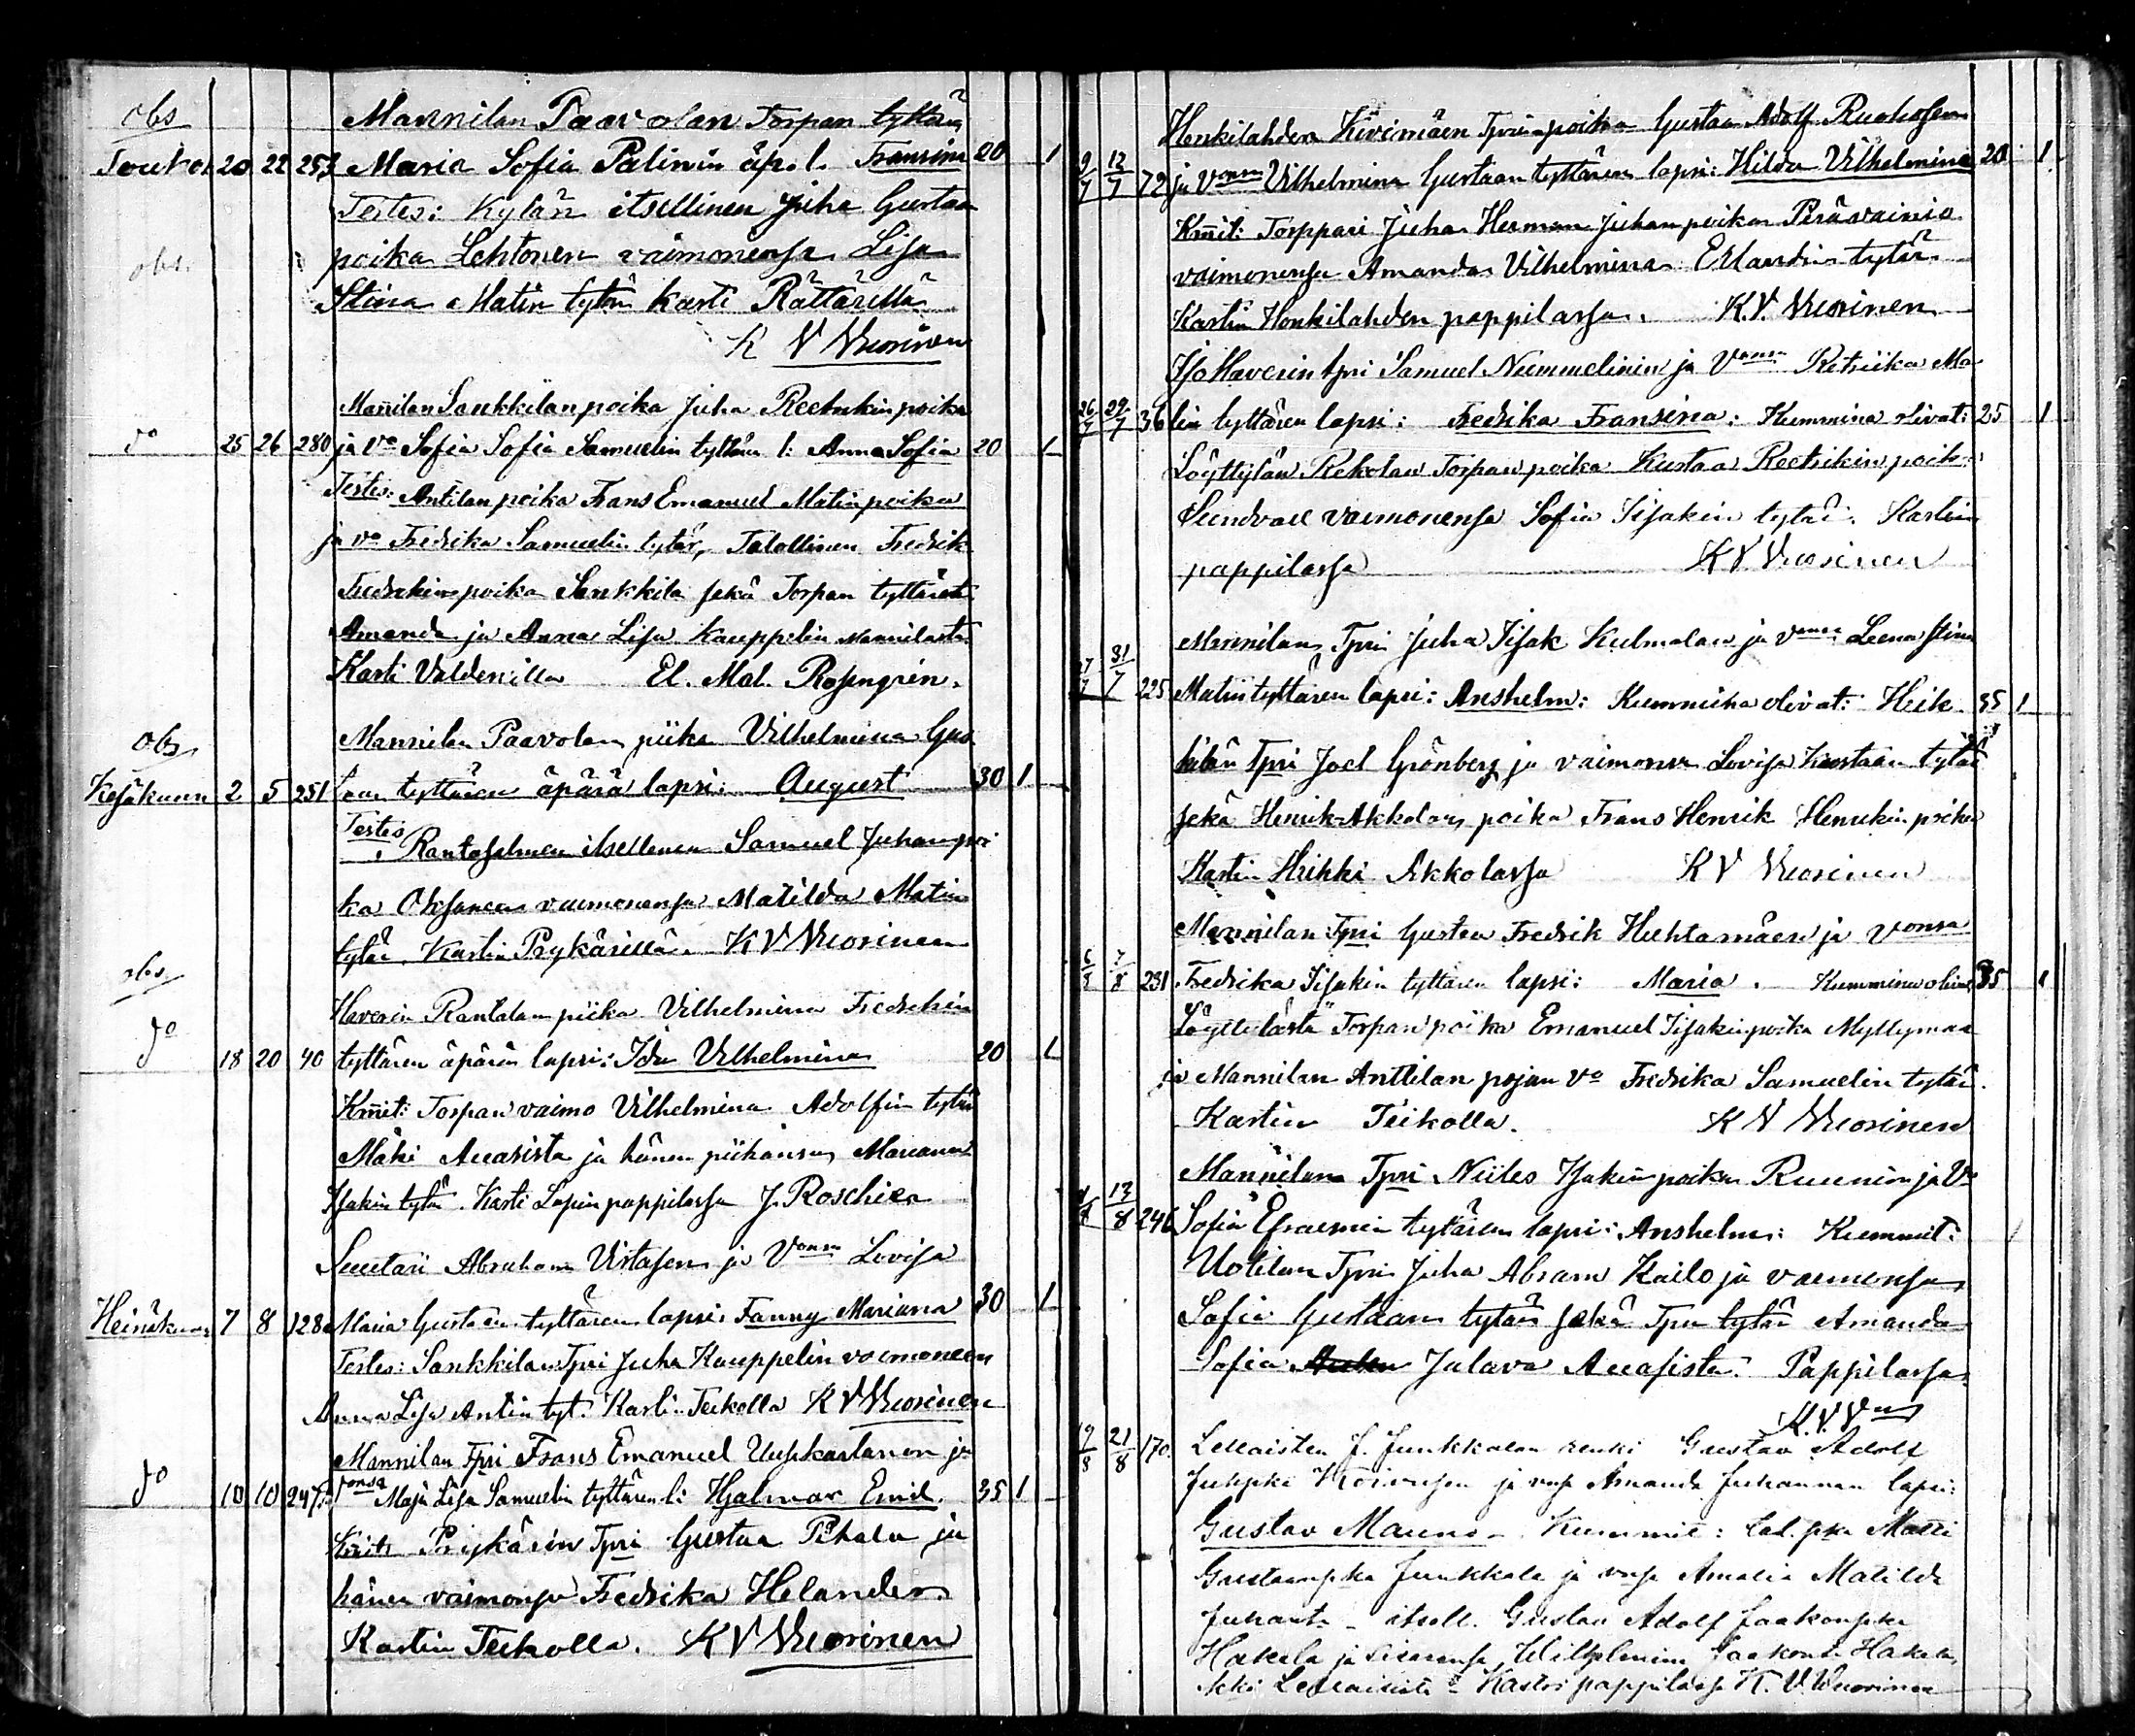 obs
Mannilan Paavolan Torpan tyttären
Touko 20 22 253 Maria Sofia Palinin äp. l. Fransina 20 1
Testes: Kylän itsellinen Juha Gustaa
poika Lehtonen vaimonensa Lisa
obs.
Stina Matin tytär kasti Rättärillä
K V Vuorinen
Mannilan Sankkilan poika Juha Reetrikin poika
do 25 26 280 ja vo Sofia Sofia Samuelin tyttären l: Anna Sofia 20 1
Testes: Antilan poika Frans Emanuel Matin poika
ja vo Fredrika Samuelin tytär, Talollinen Fredrik
Fredrikin poika Sankkila sekä Torpan tyttäret
Amanda ja Anna Lisa Kauppelin Mannilasta
Kasti Valdenilla El. Mat. Rosengrén.
obs
Mannilan Paavolan piika Vilhelmina Gus
Kesäkuun 2 5 251 taan tyttären äpärä lapsi: August 30 1
Testes: Rantasalmen itsellinen Samuel Juhan poi
ka Oksanen vaimonensa Matilda Matin
tytär. Kastin Prykärillä. K V Vuorinen
obs
Haverin Rantalan piika Vilhelmina Fredrikin
do 18 20 40 tyttären äpärä lapsi: Ida Vilhelmina 20 1
Kmit: Torpan vaimo Vilhelmina Adolfin tytär
Mäki Auasista ja hänen piikansa Mariana
Isakin tytär. Kasti Lapin pappilassa J. Roschier
Suutari Abraham Virtasen ja Vonsa Lovisa
Heinäkuun 7 8 128 Maria Gustaan tyttären lapsi: Fanny Mariana 30 1
Testes: Sankkilan Tpri Juha Kauppelin vaimoneen
Anna Lisa Antin tyt. Kasti Teikolla K V Vuorinen
Mannilan Tpri Frans Emanuel Uusikartanon ja
do 10 10 247 vonsa Maja Lisa Samuelin tyttären l: Hjalmar Emil 35 1
Kmit: Prykärin Tpri Gustaa Pihala ja
hänen vaimonsa Fredrika Helander
Kastin Teikolla. K V Vuorinen
Honkilahden Kivimäen Tprin poika Gustaa Adolf Ruohosen
9/7 12/7 72 ja Vonsa Vilhelmina Gustaan tyttären lapsi: Hilda Vilhelmina 20 1
Kmit: Torppari Juha Herman Juhan poika Perävainio
vaimonensa Amanda Vilhelmina Erlandin tytär
Kastin Honkilahden pappilassa. K. V. Vuorinen
Iso Haverin tpri Samuel Nummelinin ja Vonsa Retriika Ma
26/7 29/7 36 lin tyttären lapsi: Fredrika Fransina: Kummina olivat: 25 1
Löyttylän Rekolan Torpan poika Kustaa Reetrikin poik
Sundvall vaimonensa Sofia Iisakin tytär. Kastin
pappilassa K V Vuorinen
Mannilan Tpri Juha Iisak Kulmalan ja vonsa Leena Stina
31/7 225 Matin tyttären lapsi: Anshelm: Kummina olivat: Heik 35 1
kilän Tpri Joel Grönberg ja vaimonsa Lovisa Kustaan tytär
sekä Heinik Akkolan poika Frans Henrik Henrikin poika
Kastin Heikki Akkolassa K V Vuorinen
Mannilan Tpri Gustaa Fredrik Huhtamäen ja vonsa
6/8 7/8 231 Fredrika Iisakin tyttären lapsi: Maria. Kummina olivat 35 1
Löyttylästä Torpan poika Emanuel Iisakin poika Myllymaa
ja Mannilan Anttilan pojan vo Fredrika Samuelin tytär.
Kastin Teikolla. K V Vuorinen
Mannilan Tpri Niiles Isakin poika Ruunin ja Vo
13/8 246 Sofia Efraimin tytären lapsi: Anshelm: Kummit:
Uotilan Tpri Juha Abram Kailo ja vaimonsa
Sofia Gustaan tytär sekä Tprin tytär Amanda
Sofia Julava Auasista. Pappilassa.
K. V. Vnen
19/8 21/8 170. Lellaisten J. Junkkalan renki Gustav Adolf
Juhpka Koivusen ja vnsa Amanda Juhannan lapsi:
Gustav Mauno – Kummit: tal. pka Matti
Gustaanpka Junkkala ja vnsa Amalia Matilda
Juhant. – itsell. Gustav Adolf Jaakonpka
Hakala ja sisarensa Wilhelmina Jaakont. Hakala,
Lellaisista – Kastoi pappilassa K. V. Vuorinen